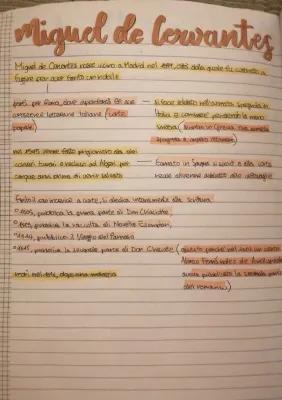 Miguel de Cervantes
Miguel de Cervantes nasce vicino a Madrid nel 1547, città dalla quale fu costretto a
fuggire per aver ferito un nobile
partì per Roma, dove approfondì le sue
conoscenze letterarie italiane (corte
papale)
si fece soldato nell'armata spagnola in
Italia e combatté perdendo la mano
sinistra
nel 1575 venne fatto prigioniero da dei
corsari turchi e venduto ad Algeri per
cinque anni prima di venir salvato
tornato in Spagna si sposò e alla corte
reale divenne addetto alle
si dedica interamente alla scrittura
1605, pubblica la prima parte di Don Chisciotte
1613, pubblica la raccolta di Novelle Esemplari
1614, pubblica il Viaggio del Parnaso
1615, pubblica la seconda parte di Don Chisciotte
Alonso Fernández de Avellaneda
aveva pubblicato la seconda parte
del romanzo)
morì nel 1616, dopo una malattia